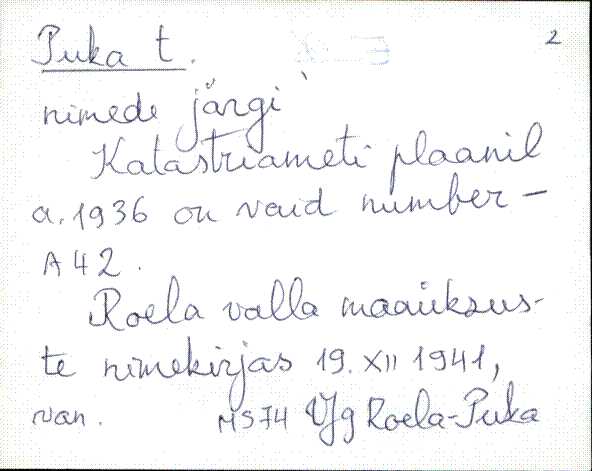 Puka t. 2
nimede järgi
Katastriameti plaanil
a. 1936 on vaid number -
A 42.
Roela valla maaüksus-
te nimekirjas 19. XII 1941,
van. MS74 VJg Roela-Puka